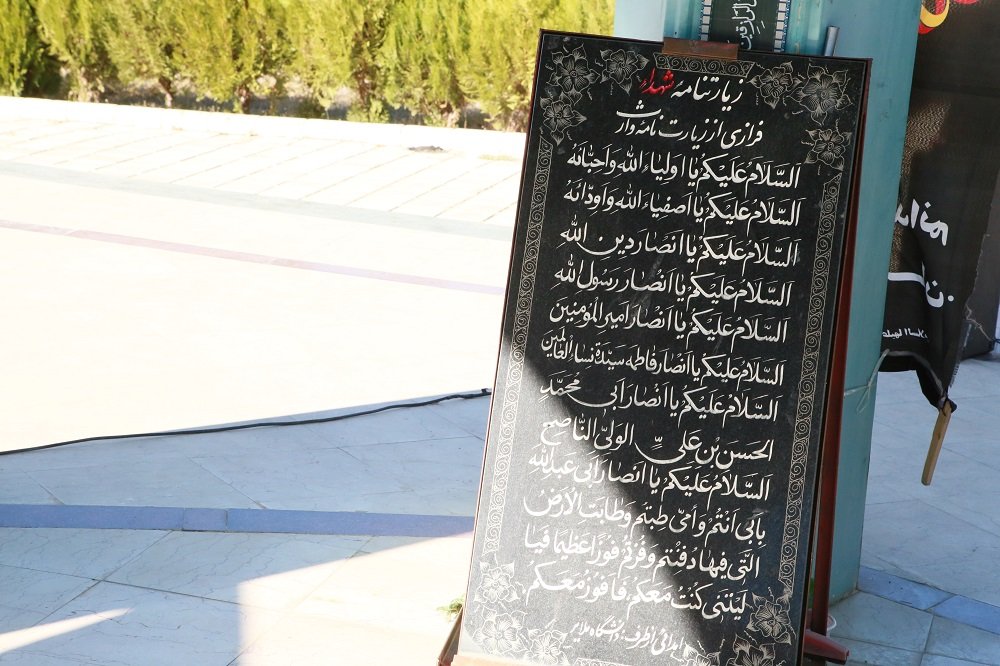 زیارتنامه شهداء
فرازی از زیارت نامه وارث
السَّلامُ عَلَیْکُمْ یا اَوْلِیاءَ اللهِ وَاَحِبّائَهُ
السَّلامُ عَلَیْکُمْ یا اَصْفِیاءَ اللهِ وَاَوِدّائَهُ
السَّلامُ عَلَیْکُمْ یا اَنْصارَ دینِ اللهِ
السَّلامُ عَلَیْکُمْ یا اَنْصارَ رَسُولِ اللهِ
السَّلامُ عَلَیْکُمْ یا اَنْصارَ اَمیرِ الْمُؤمِنینَ
السَّلامُ عَلَیْکُمْ یا اَنْصارَ فاطِمَه سَیِّدَةِ نِساءِ الْعالَمینَ
السَّلامُ عَلَیْکُمْ یا اَنْصارَ اَبی مُحَمَّدٍ
الحَسَنِ بْنِ عَلِیٍّ الوَلِیِّ النّاصِحِ
السَّلامُ عَلَیْکُمْ یا اَنْصارَ اَبی عَبْدِاللهِ
بِاَبی اَنْتُمْ وَ اُمّی طِبْتُمْ وَ طابَتِ الْاَرْضُ
الَّتی فیها دُفِنْتُمْ وَ فُزْتُمْ فَوْزاً عَظیماً فَیا
لَیْتَنی کُنْتُ مَعَکُمْ فَاَفُوزَ مَعَکُمْ
اهدائی از طرف: دانشگاه